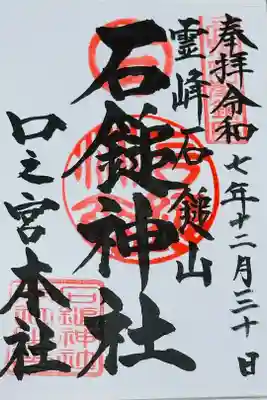 奉拝令和
七年十二月三十日
霊峰石鎚山
石鎚神社
口之宮本社